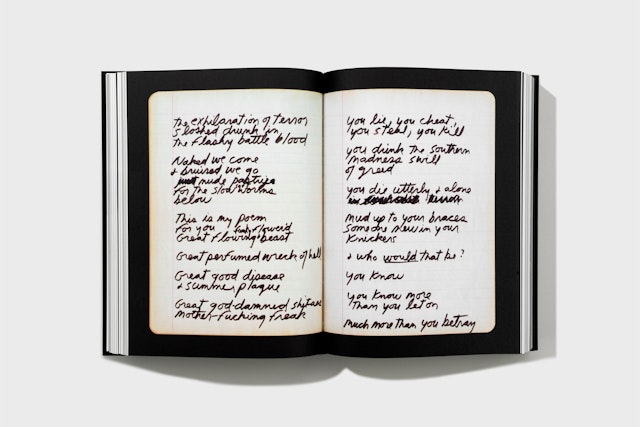 The exhilaration of terror
sloshed drunk in
the flashy battle blood
Naked we come
+ bruised we go
nude pastries
for the slow worms
below
This is my poem
for you
Great flowing funky flower'd beast
Great perfumed wreck of hell
Great good disease
+ summer plague
Great god-damned shit-ass
Mother-fucking freak
you lie, you cheat,
you steal, you kill
you drink the southern
madness swill
of greed
you die utterly + alone
Mud up to your braces
Someone new in your
knickers
+ who would that be?
you know
you know more
than you let on
Much more than you betray